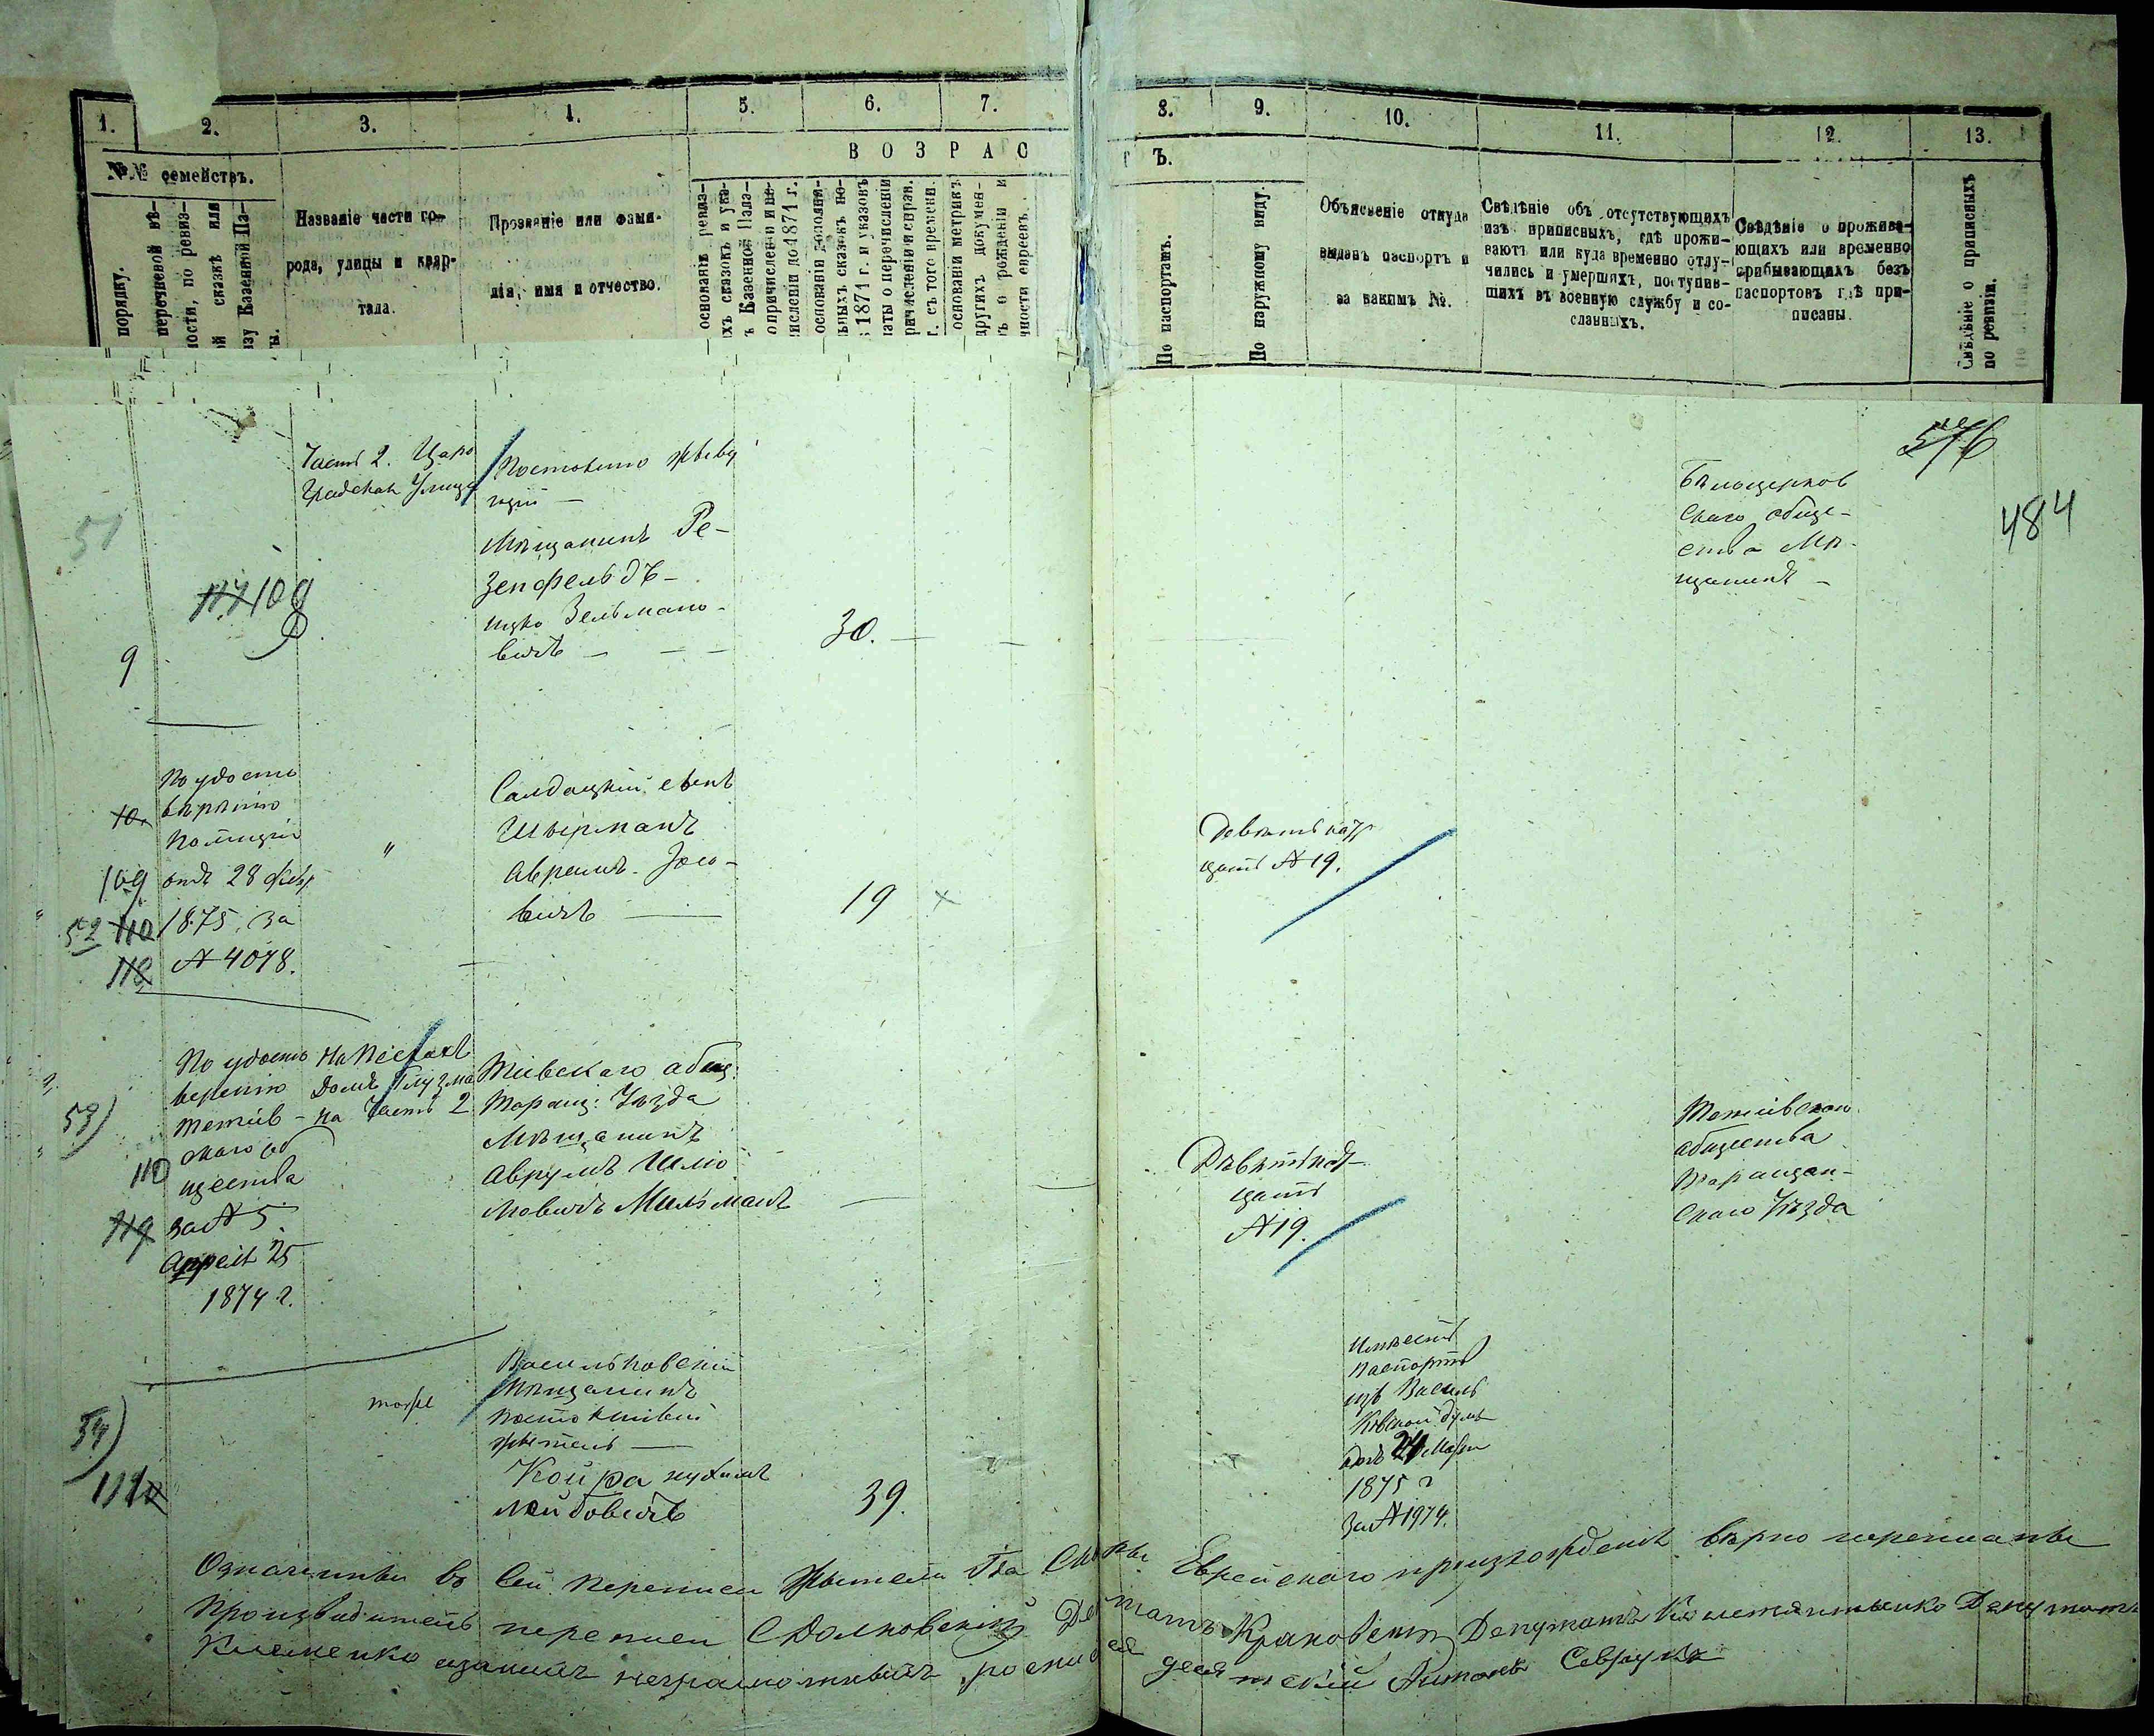 1.
2.
3.
4.
5.
6.
7.
8.
9.
10.
11.
12.
13.
В О З Р А С
Г Ъ.
№№ семействъ.
порядку.
перечневой вѣ-
ности, по ревиз-
ой сказкѣ или
азу Казенной Па-
ы.
Названіе части го-
рода, улицы и квар-
тала.
Прозваніе или фами-
лія, имя и отчество.
основаніи ревиз-
хъ сказокъ и ука-
ъ Казенной Пала-
о причисленіи и пе-
исленіи до 1871 г.
основаніи дополни-
ьныхъ сказокъ по-
1871 г. и указовъ
латы о перечисленіи
ричисленіи евреев.
г. съ того времени.
основаніи метрикъ
другихъ докумен-
ъ о рожденіи и
чности евреевъ.
По паспортамъ.
По наружному виду.
Объясненіе откуда
выданъ паспортъ и
за какимъ №.
Свѣдѣніе объ отсутствующихъ
изъ приписныхъ, гдѣ прожи-
ваютъ или куда временно отлу-
чились и умершихъ, поступив-
шихъ въ военную службу и со-
сланныхъ.
Свѣдѣніе о прожива-
ющихъ или временно
прибывающихъ безъ
паспортовъ гдѣ при-
писаны.
Свѣдѣніе о приписныхъ
по ревизіи.
576
484
51
117 108
9
Часть 2. Царо
Градская Улица
Постоянно живу
щій —
Мѣщанинъ Ре-
зенфельдъ —
Ицко Зельмано-
вичъ —
30.
Бѣлоцерков
скаго обще-
ства Мѣ-
щанинъ —
10.
109
52 110
118
По удосто
вѣрѣнію
Полиціи
отъ 28 февр
1875 за
№ 4078.
"
Салдацкій сынъ
Шырманъ
Аврамъ
вичъ —
19
Девятнад
цать № 19.
53)
110
119
По удосто
веренію
тетіев-
скаго об
щества
за № 5.
Апреля 25
1874 г.
На Пескахъ
Домъ Глузма
на Часть 2
Тиевскаго общ:
Таращ: Уезда
Мѣщанинъ
Аврумъ Шлио
мовичъ Мильманъ
Дѣвятнад-
цать
№ 19.
Тетіевскаго
общества
Таращан-
скаго Уезда
54)
111
тоже
Васильковскій
Мѣщанинъ
житель —
Койра нухимъ
Лейбовичъ
39.
Имѣетъ
паспортъ
изъ Василь
ковской думы
отъ 24 Марта
1875 г
за № 1974.
Означенныи во сей переписи жители Еврейскаго произхожденія вѣрно переписаны
Производитель переписи Депутатъ
Клеменко